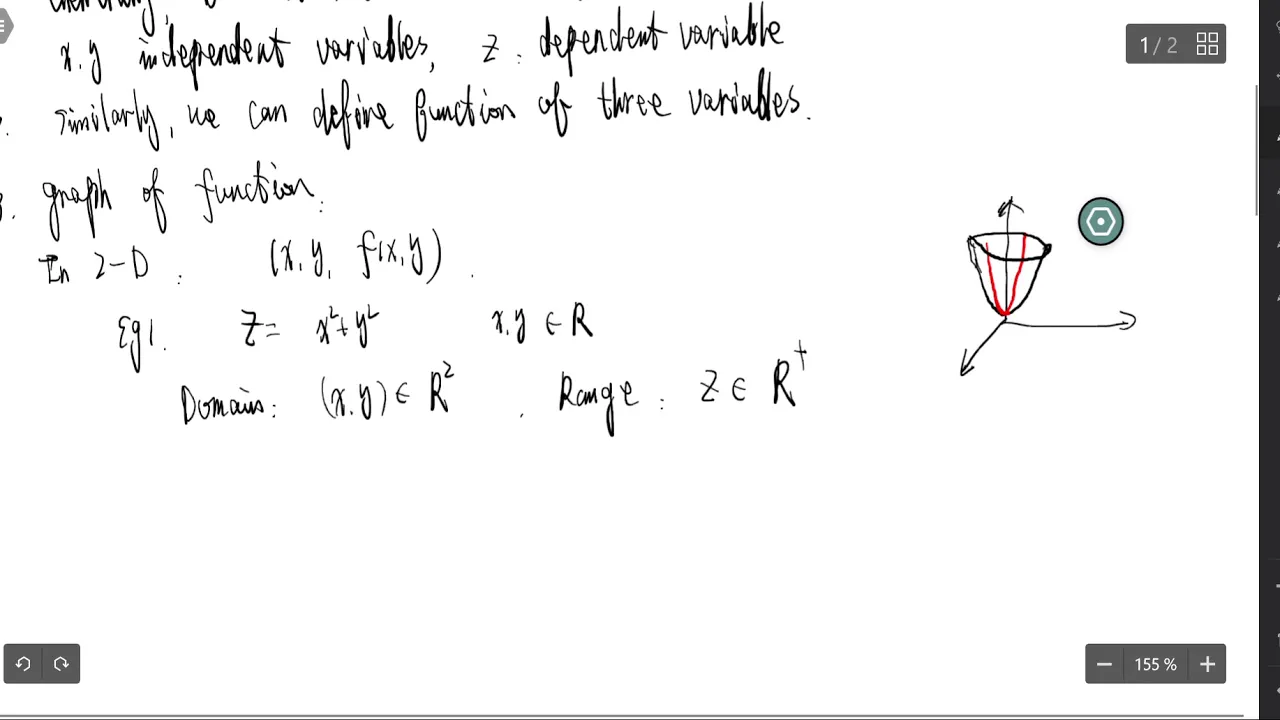 x.y independent variables, z: dependent variable
1 / 2
similarly, we can define function of three variables.
3. graph of function:
In 2-D : (x, y, f(x,y) .
Eg1. Z= x²+y² x.y ∈ R
Domain: (x.y) ∈ R² . Range : Z ∈ R⁺
155 %